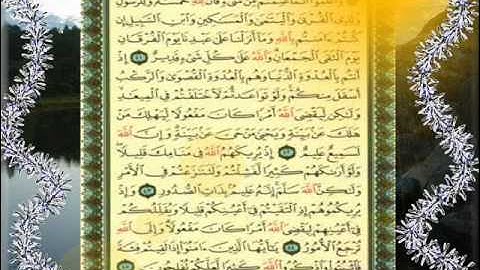 وَٱعْلَمُوٓا۟ أَنَّمَا غَنِمْتُم مِّن شَىْءٍ فَأَنَّ لِلَّهِ خُمُسَهُۥ وَلِلرَّسُولِ
وَلِذِى ٱلْقُرْبَىٰ وَٱلْيَتَـٰمَىٰ وَٱلْمَسَـٰكِينِ وَٱبْنِ ٱلسَّبِيلِ إِن
كُنتُمْ ءَامَنتُم بِٱللَّهِ وَمَآ أَنزَلْنَا عَلَىٰ عَبْدِنَا يَوْمَ ٱلْفُرْقَانِ
يَوْمَ ٱلْتَقَى ٱلْجَمْعَانِ وَٱللَّهُ عَلَىٰ كُلِّ شَىْءٍ قَدِيرٌ ٤١ إِذْ
أَنتُم بِٱلْعُدْوَةِ ٱلدُّنْيَا وَهُم بِٱلْعُدْوَةِ ٱلْقُصْوَىٰ وَٱلرَّكْبُ
أَسْفَلَ مِنكُمْ وَلَوْ تَوَاعَدتُّمْ لَٱخْتَلَفْتُمْ فِى ٱلْمِيعَـٰدِ
وَلَـٰكِن لِّيَقْضِىَ ٱللَّهُ أَمْرًا كَانَ مَفْعُولًا لِّيَهْلِكَ مَنْ
هَلَكَ عَنۢ بَيِّنَةٍ وَيَحْيَىٰ مَنْ حَىَّ عَنۢ بَيِّنَةٍ وَإِنَّ ٱللَّهَ
لَسَمِيعٌ عَلِيمٌ ٤٢ إِذْ يُرِيكَهُمُ ٱللَّهُ فِى مَنَامِكَ قَلِيلًا
وَلَوْ أَرَىٰكَهُمْ كَثِيرًا لَّفَشِلْتُمْ وَلَتَنَـٰزَعْتُمْ فِى ٱلْأَمْرِ
وَلَـٰكِنَّ ٱللَّهَ سَلَّمَ إِنَّهُۥ عَلِيمٌۢ بِذَاتِ ٱلصُّدُورِ ٤٣ وَإِذْ
يُرِيكُمُوهُمْ إِذِ ٱلْتَقَيْتُمْ فِىٓ أَعْيُنِكُمْ قَلِيلًا وَيُقَلِّلُكُمْ
فِىٓ أَعْيُنِهِمْ لِيَقْضِىَ ٱللَّهُ أَمْرًا كَانَ مَفْعُولًا وَإِلَى ٱللَّهِ
تُرْجَعُ ٱلْأُمُورُ ٤٤ يَـٰٓأَيُّهَا ٱلَّذِينَ ءَامَنُوٓا۟ إِذَا لَقِيتُمْ فِئَةً
فَٱثْبُتُوا۟ وَٱذْكُرُوا۟ ٱللَّهَ كَثِيرًا لَّعَلَّكُمْ تُفْلِحُونَ